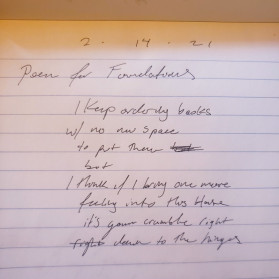 2 . 14 . 21
Poem for Foundations
I keep ordering books
w/ no new space
to put them
but
I think if I bring one more
feeling into this House
it's gonna crumble right
right down to the hinges